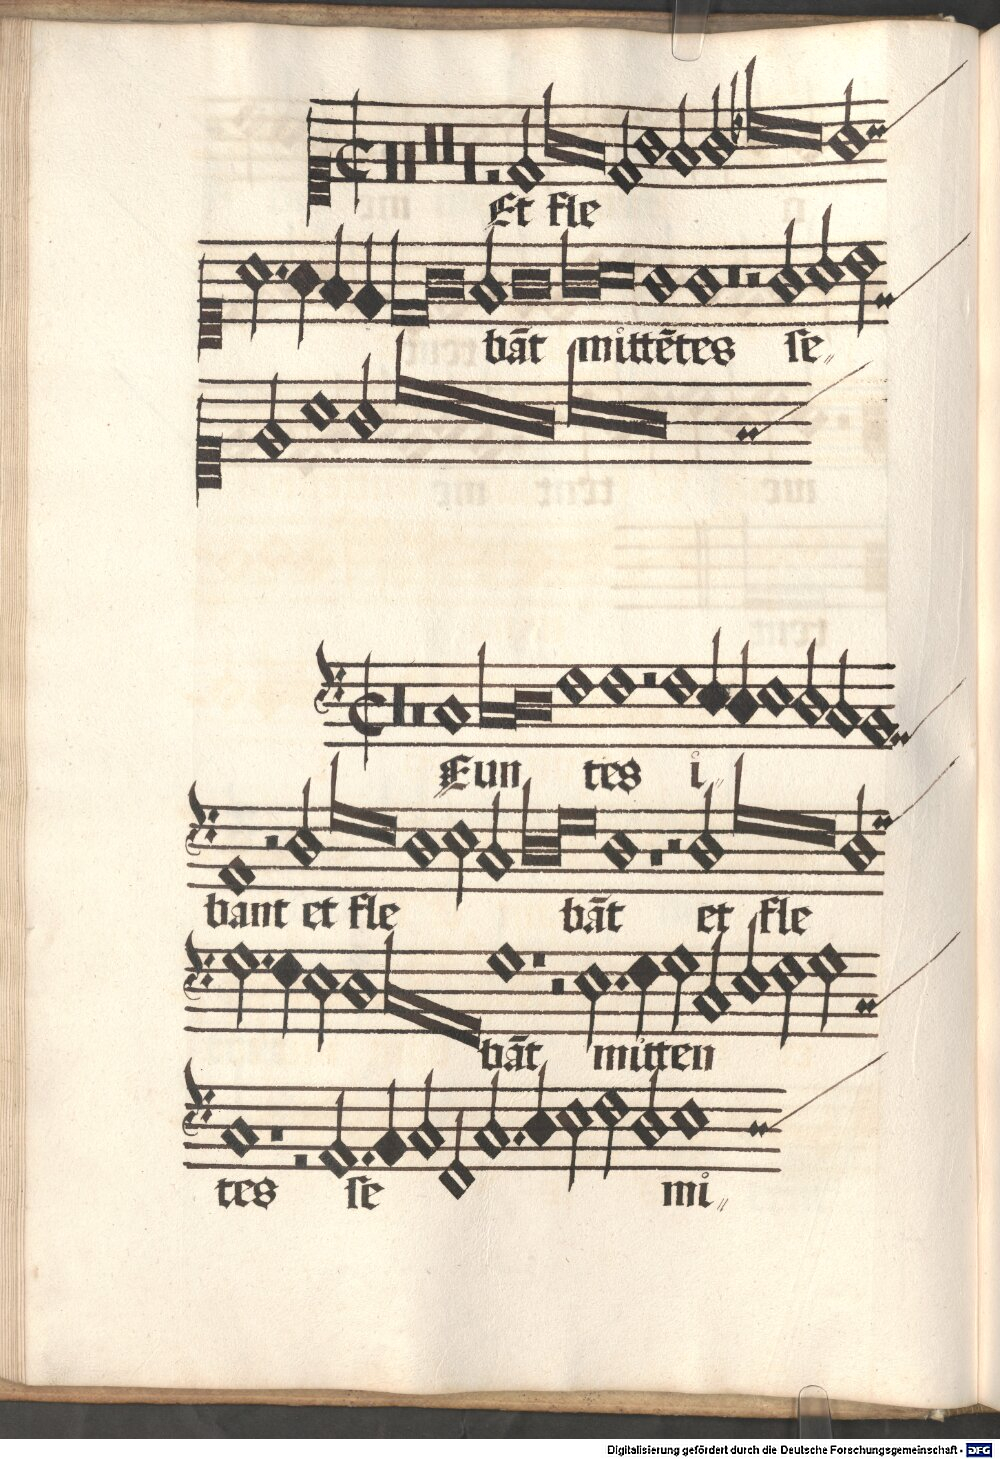 Et fle
bāt mittētes se„
Eun tes i„
bant et fle bāt et fle
bāt mitten
tes se mi„
Digitalisierung gefördert durch die Deutsche Forschungsgemeinschaft - DFG